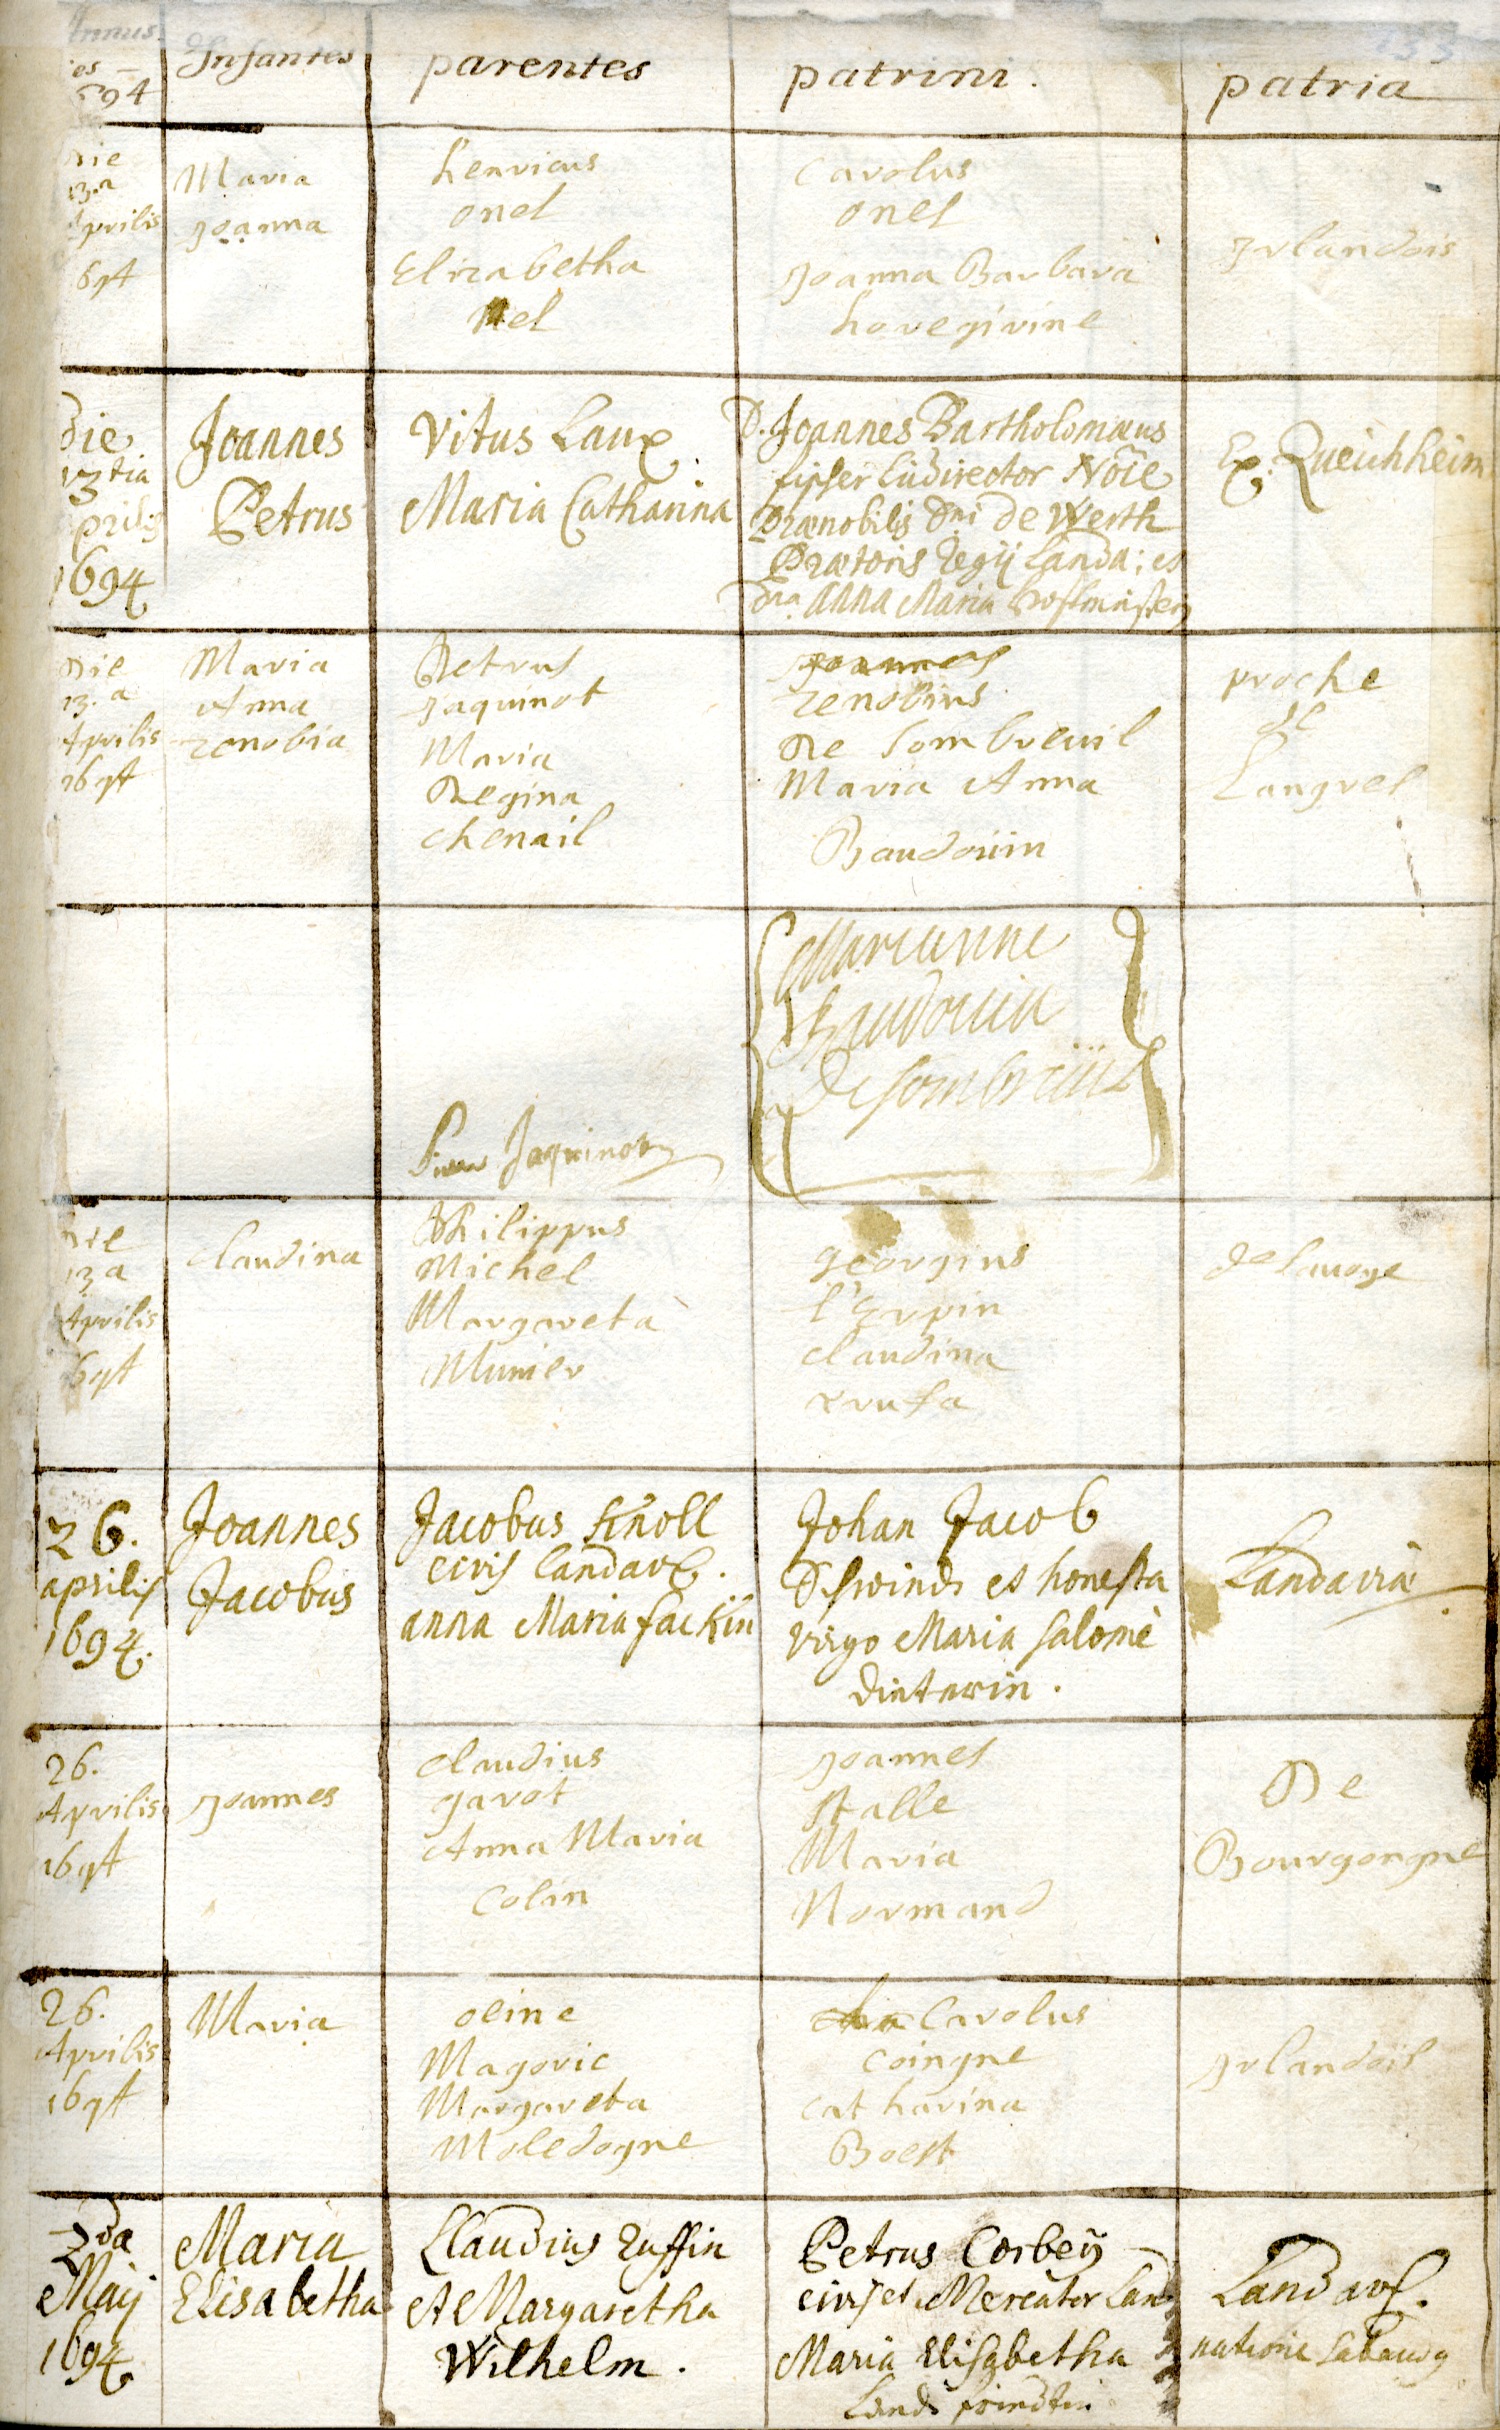 Annus
Infantes
parentes
patrini.
patria
es
694
die
13.a
Aprilis
694
Maria
Joanna
henricus
onel
Elizabetha
nel
Carolus
onel
Joanna Barbara
hovegivine
Irlandois
Die
13 tia
prilis
1694
Joannes
Petrus
Vitus Laux
Maria Catharina
D. Joannes Bartholomæus
ludirector Nõie
Prænobilis Dni de Werth
Prætoris Regij Landa: et
Dna. Anna Maria
Ex. Queichheim
Die
13.a
Aprilis
1694
Maria
Anna
zenobia
Petrus
Jaquinot
Maria
Regina
chenail
zenobius
De Sombreuil
Maria Anna
Baudouin
proche
de
Langres
Marianne
Baudouin
De sombreüil
Jaquinot
die
13 a
Aprilis
694
Claudina
Philippus
Michel
Margareta
Munier
georgius
claudina
de Savoye
26.
aprilis
1694.
Joannes
Jacobus
Jacobus Knoll
civis Landav.
anna Maria Sackin
Johan Jacob
Schwind et honesta
virgo Maria Salome
Landaviæ
26.
Aprilis
1694
Joannes
claudius
garot
Anna Maria
Colin
Joannes
Stalle
Maria
Normand
De
Bourgongne
26.
Aprilis
1694
Maria
oeine
Magoric
Margareta
Moledogne
Carolus
Coingne
catharina
Boest
Irlandois
2da
Maij
1694
Maria
Elisabetha
Claudius Ruffin
et Margaretha
Wilhelm.
Petrus Corbeÿ
civis et Mercator Land
Maria Elisabetha
Landav.
natione Sabaudg